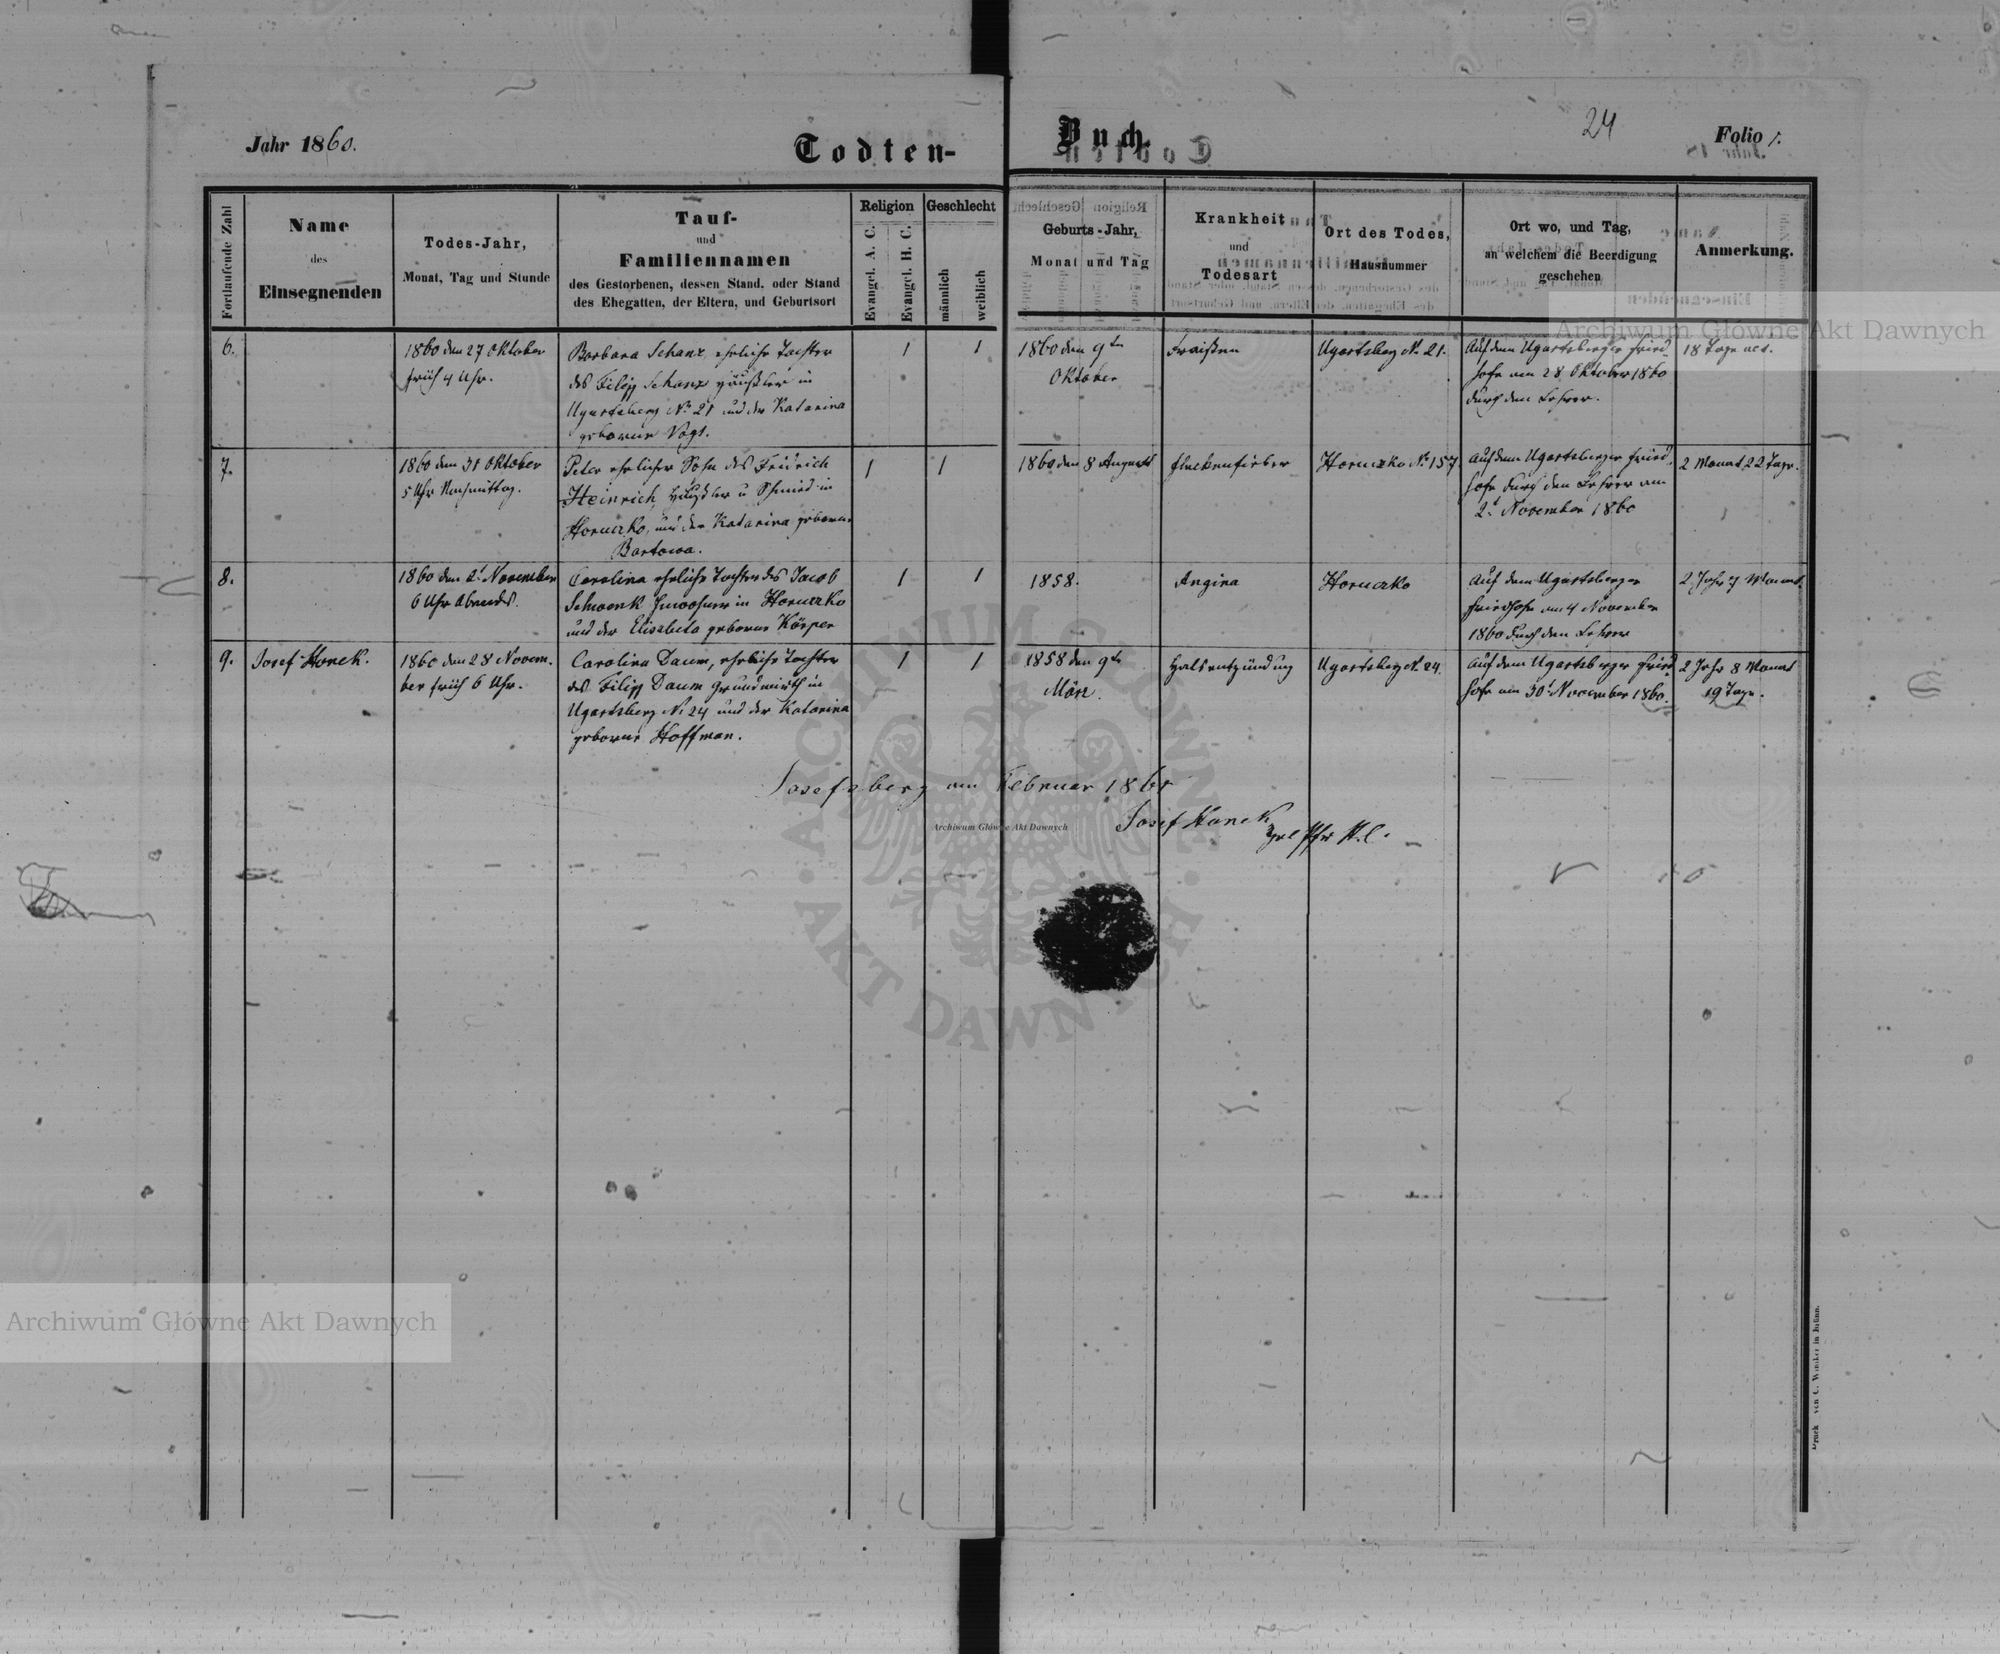 Jahr 1860.
Todten-
Buch.
24
Folio 1.
Fortlaufende Zahl
Name
des
Einsegnenden
Todes-Jahr,
Monat, Tag und Stunde
Tauf-
und
Familiennamen
des Gestorbenen, dessen Stand, oder Stand
des Ehegatten, der Eltern, und Geburtsort
Religion
Evangel. A. C.
Evangel. H. C.
Geschlecht
männlich
weiblich
Geburts-Jahr,
Monat und Tag
Krankheit
und
Todesart
Ort des Todes,
Hausnummer
Ort wo, und Tag,
an welchem die Beerdigung
geschehen
Anmerkung.
6.
1860 den 27 Oktober
früh 4 Uhr.
Barbara Schanz, ehrliche Tochter
des Filipp Schanz Häußler in
Ugartsberg No 21 und der Katarina
geborene Vogt.
1
1
1860 den 9ten
Oktober
Fraißen
Ugartsberg No. 21.
Auf dem Ugartsberger Fried
hofe am 28 Oktober 1860
durch den Lehrer.
18 Tage alt.
7.
1860 den 31 Oktober
5 Uhr Nachmittag.
Peter ehrlicher Sohn des Fridrich
Heinrich, Häußler u Schmied in
Horuczko, und der Katarina geborene
Bartowa.
1
1
1860 den 8 August
Fleckenfieber
Horuczko No. 157.
Auf dem Ugartsberger Fried
hofe durch den Lehrer am
2t November 1860
2 Monat 22 Tage.
8.
1860 den 2t November
6 Uhr Abends.
Carolina ehrliche Tochter des Jacob
Schwenk Inwohner in Horuczko
und der Elisabeta geborene Körper
1
1
1858.
Angina
Horuczko
Auf dem Ugartsberger
Friedhofe am 4 November
1860 durch den Lehrer
2 Jahr 7 Monat.
9.
Josef Honek.
1860 den 28 Novem-
ber früh 6 Uhr.
Carolina Daum, ehrliche Tochter
des Filipp Daum Grundwirth in
Ugartsberg No 24 und der Katarina
geborene Hoffman.
1
1
1858 den 9ten
März.
Halsentzündung
Ugartsberg No. 24.
Auf dem Ugartsberger Fried
hofe am 30t November 1860.
2 Jahr 8 Monat
19 Tage.
Josefsberg am Februar 1861
Josef Honek
Pfr H.C.
Archiwum Główne Akt Dawnych
Archiwum Główne Akt Dawnych
Archiwum Główne Akt Dawnych
ARCHIWUM GŁÓWNE AKT DAWNYCH